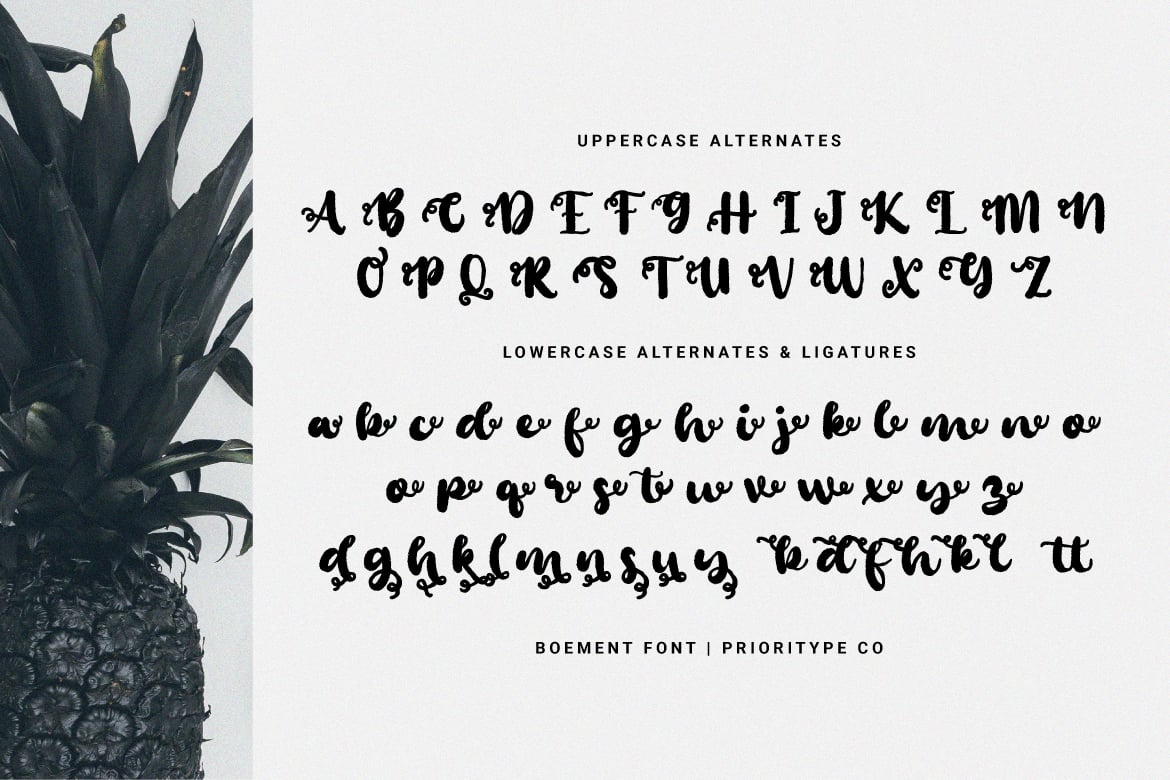 UPPERCASE ALTERNATES
A B C D E F G H I J K L M N
O P Q R S T U V W X Y Z
LOWERCASE ALTERNATES & LIGATURES
a b c d e f g h i j k l m n o
o p q r s t u v w x y z
d g h k l m n s u y b d f h k l tt
BOEMENT FONT | PRIORITYPE CO